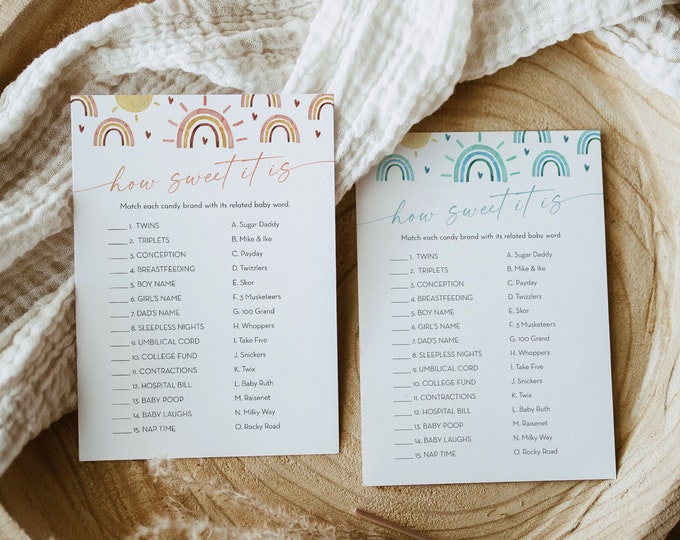 how sweet it is
Match each candy brand with its related baby word.
____ 1. TWINS A. Sugar Daddy
____ 2. TRIPLETS B. Mike & Ike
____ 3. CONCEPTION C. Payday
____ 4. BREASTFEEDING D. Twizzlers
____ 5. BOY NAME E. Skor
____ 6. GIRL'S NAME F. 3 Musketeers
____ 7. DAD'S NAME G. 100 Grand
____ 8. SLEEPLESS NIGHTS H. Whoppers
____ 9. UMBILICAL CORD I. Take Five
____ 10. COLLEGE FUND J. Snickers
____ 11. CONTRACTIONS K. Twix
____ 12. HOSPITAL BILL L. Baby Ruth
____ 13. BABY POOP M. Raisenet
____ 14. BABY LAUGHS N. Milky Way
____ 15. NAP TIME O. Rocky Road
how sweet it is
Match each candy brand with its related baby word.
____ 1. TWINS A. Sugar Daddy
____ 2. TRIPLETS B. Mike & Ike
____ 3. CONCEPTION C. Payday
____ 4. BREASTFEEDING D. Twizzlers
____ 5. BOY NAME E. Skor
____ 6. GIRL'S NAME F. 3 Musketeers
____ 7. DAD'S NAME G. 100 Grand
____ 8. SLEEPLESS NIGHTS H. Whoppers
____ 9. UMBILICAL CORD I. Take Five
____ 10. COLLEGE FUND J. Snickers
____ 11. CONTRACTIONS K. Twix
____ 12. HOSPITAL BILL L. Baby Ruth
____ 13. BABY POOP M. Raisenet
____ 14. BABY LAUGHS N. Milky Way
____ 15. NAP TIME O. Rocky Road